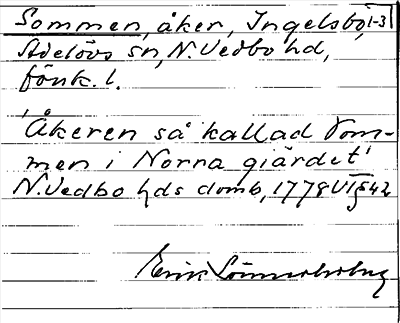 Sommen, åker, Ingelsbo, 1-3
Adelövs sn, N. Vedbo hd,
Jönk. l.
"Åkeren så kallad Som-
men i Norna giärdet"
N. Vedbo hds domb, 1778 VT § 42
Erik